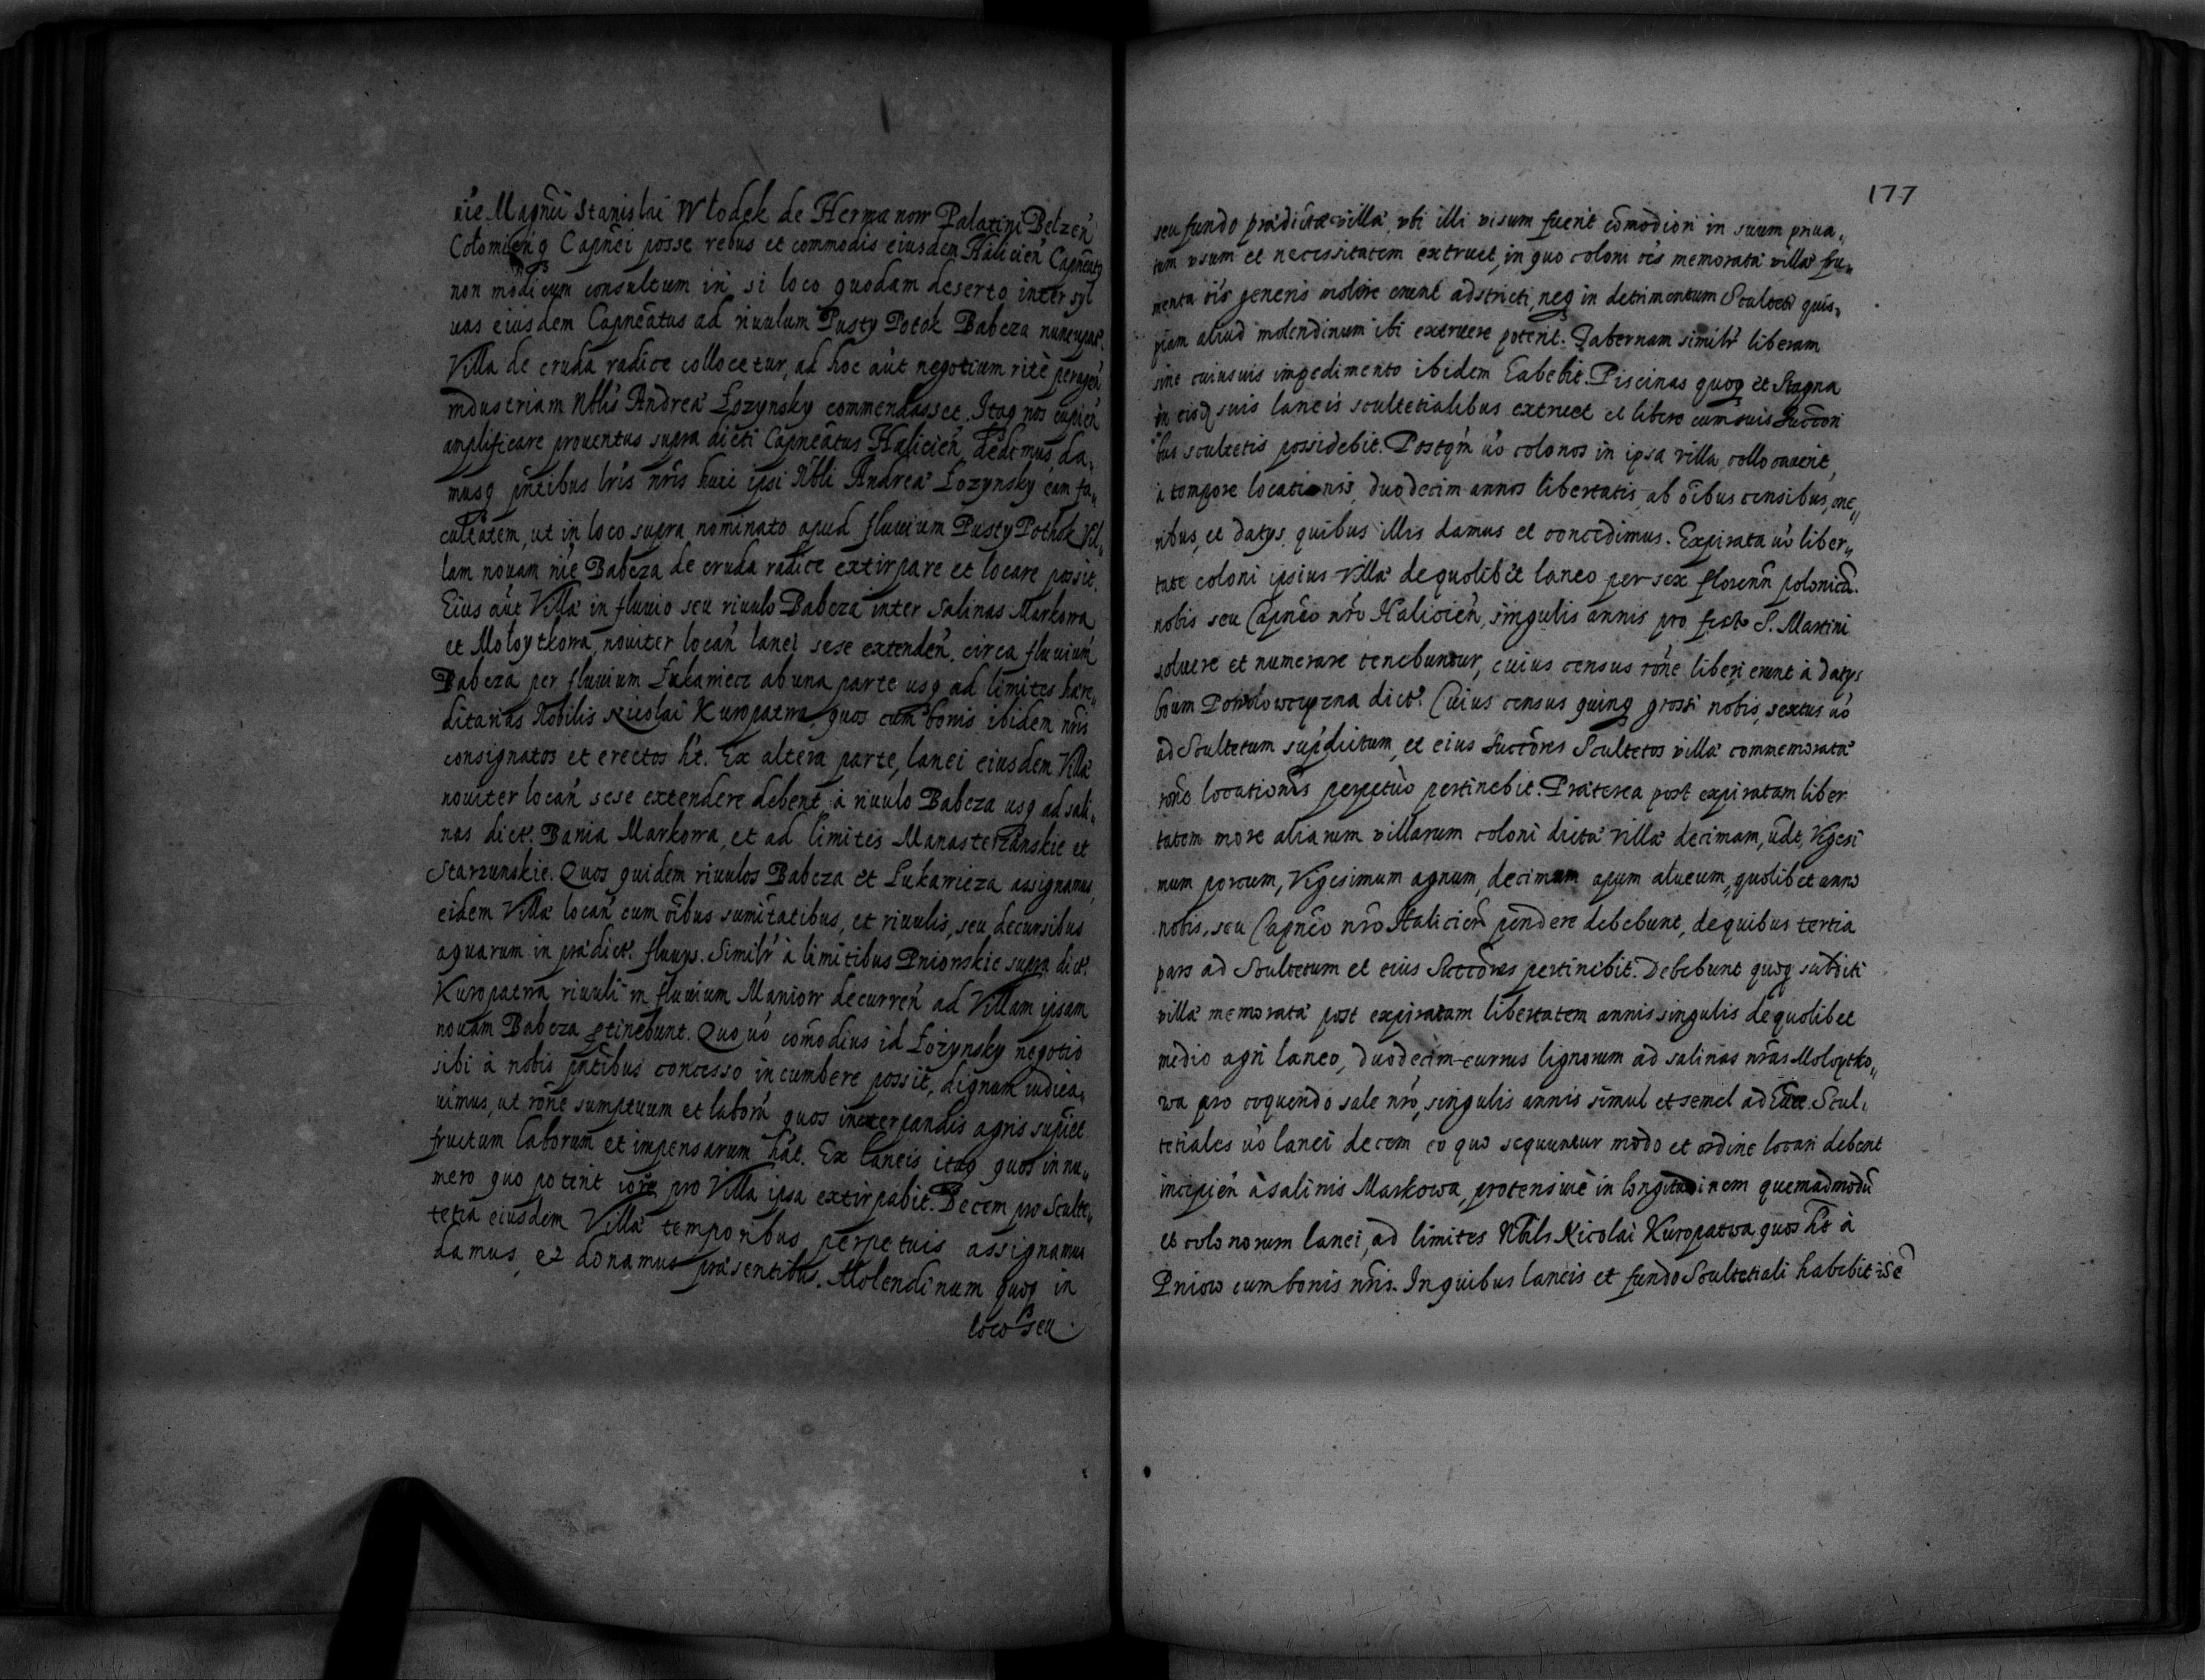 nie Magnci Stanislai Włodek de Hermanow Palatini Belzeń
Colomieńq Capnei posse rebus et commodis eiusdem Halicień Capneatq
non modicum consultum iri si loco quodam deserto inter syl
uas eiusdem Capneatus ad riuulum Pusty Potok Babcza nuncupat.
Villa de cruda radice collocetur, ad hoc aut negotium ritè peragen
industriam Nblis Andreæ Łozynsky commendasset. Itaq nos cupien
amplificare prouentus supra dicti Capneatus Halicień dedimus da„
musq pntibus lris nris huic ipsi Nbli Andreæ Łozynsky eam fa„
cultatem, ut in loco supra nominato apud fluuium Pusty Pothok Vil„
lam nouam nie Babcza de cruda radice extirpare et locare possit.
Eius aut Villæ in fluuio seu riuulo Babcza inter Salinas Markowa
et Mołoytkowa, nouiter locań lanei sese extendeń, circa fluuium
Babcza per fluuium Łukawiecz ab una parte usq ad limites hære„
ditarias Nobilis Nicolai Kuropatwa, quos cum bonis ibidem nris
consignatos et erectos ht. Ex altera parte, lanei eiusdem Villæ
nouiter locań sese extendere debent à riuulo Babcza usq ad sali„
nas dict. Bania Markowa, et ad limites Manasterzanskie et
Starzunskie. Quos quidem riuulos Babcza et Lukawicza assignamus
eidem Villæ locań cum oibus sumitatibus, et riuulis, seu decursibus
aquarum in prædict. fluuys. Similr à limitibus Pniowskie supra dict.
Kuropatwa riuuli in fluuium Maniow decurreń ad Villam ipsam
nouam Babcza ptinebunt. Quo uo comodius id Łożynsky negotio
sibi à nobis pntibus concesso incumbere possit, dignum iudica„
uimus, ut rone sumptuum et laborū quos in exterpandis agris supiet
fructum laborum et impensarum hat. Ex laneis itaq quos in nu„
mero quo poterit pro Villa ipsa extirpabit. Decem pro Sculte„
tetia eiusdem Villæ temporibus perpetuis assignamus
damus, et donamus præsentibus. Molendinum quoq in
loco seu
177
seu fundo prædictæ villæ vbi illi visum fuerit comodiori in suum priua„
tum vsum et necessitatem extruet, in quo coloni oes memoratæ villæ fru„
menta ois generis molere erunt adstricti, neq in detrimentum Sculteti quis„
piam aliud molendinum ibi extruere poterit. Tabernam similr liberam
sine cuiusuis impedimento ibidem habebit. Piscinas quoq et Stagna
in eisd suis laneis scultetialibus extruet et libere cum suis Succori
bus scultetis possidebit. Postqm uo colonos in ipsa villa collocauerit,
à tempore locationis, duodecim annos libertatis ab oibus censibus, one„
ribus, et datys quibus illis damus et concedimus. Expirata uo liber„
tate coloni ipsius villæ de quolibet laneo per sex florenn polonicā.
nobis seu Capneo nro Halicień, singulis annis pro festo S. Martini
soluere et numerare tenebuntur, cuius census rone liberi erunt à datys
boum Powolowczyzna dict. Cuius census quinq grossi nobis, sextus uo
ad Scultetum supdictum, et eius Succores Scultetos villæ commemoratæ
rone locationis perpetuo pertinebit. Præterea post expiratam liber
tatem more aliarum villarum coloni dictæ villæ decimam, udt, Vigesi
mum porcum, Vigesimum agnum, decimum apum alueum, quolibet anno
nobis, seu Capneo nro Halicień pendere debebunt, de quibus tertia
pars ad Scultetum et eius Succores pertinebit. Debebunt quoq subditi
villæ memoratæ post expiratam libertatem annis singulis de quolibet
medio agri laneo, duodecim currus lignorum ad salinas nras Moloytko„
wa pro coquendo sale nro, singulis annis simul et semel ad Scul„
tetiales uo lanei decem eo quo sequuntur modo et ordine locari debent
incipień à salinis Markowa, protensiuè in longitudinem quemadmodū
et colonorum lanei, ad limites Nblis Nicolai Kuropatwa quos ht à
Pniow cum bonis nris. In quibus laneis et fundo Scultetiali habebit ise